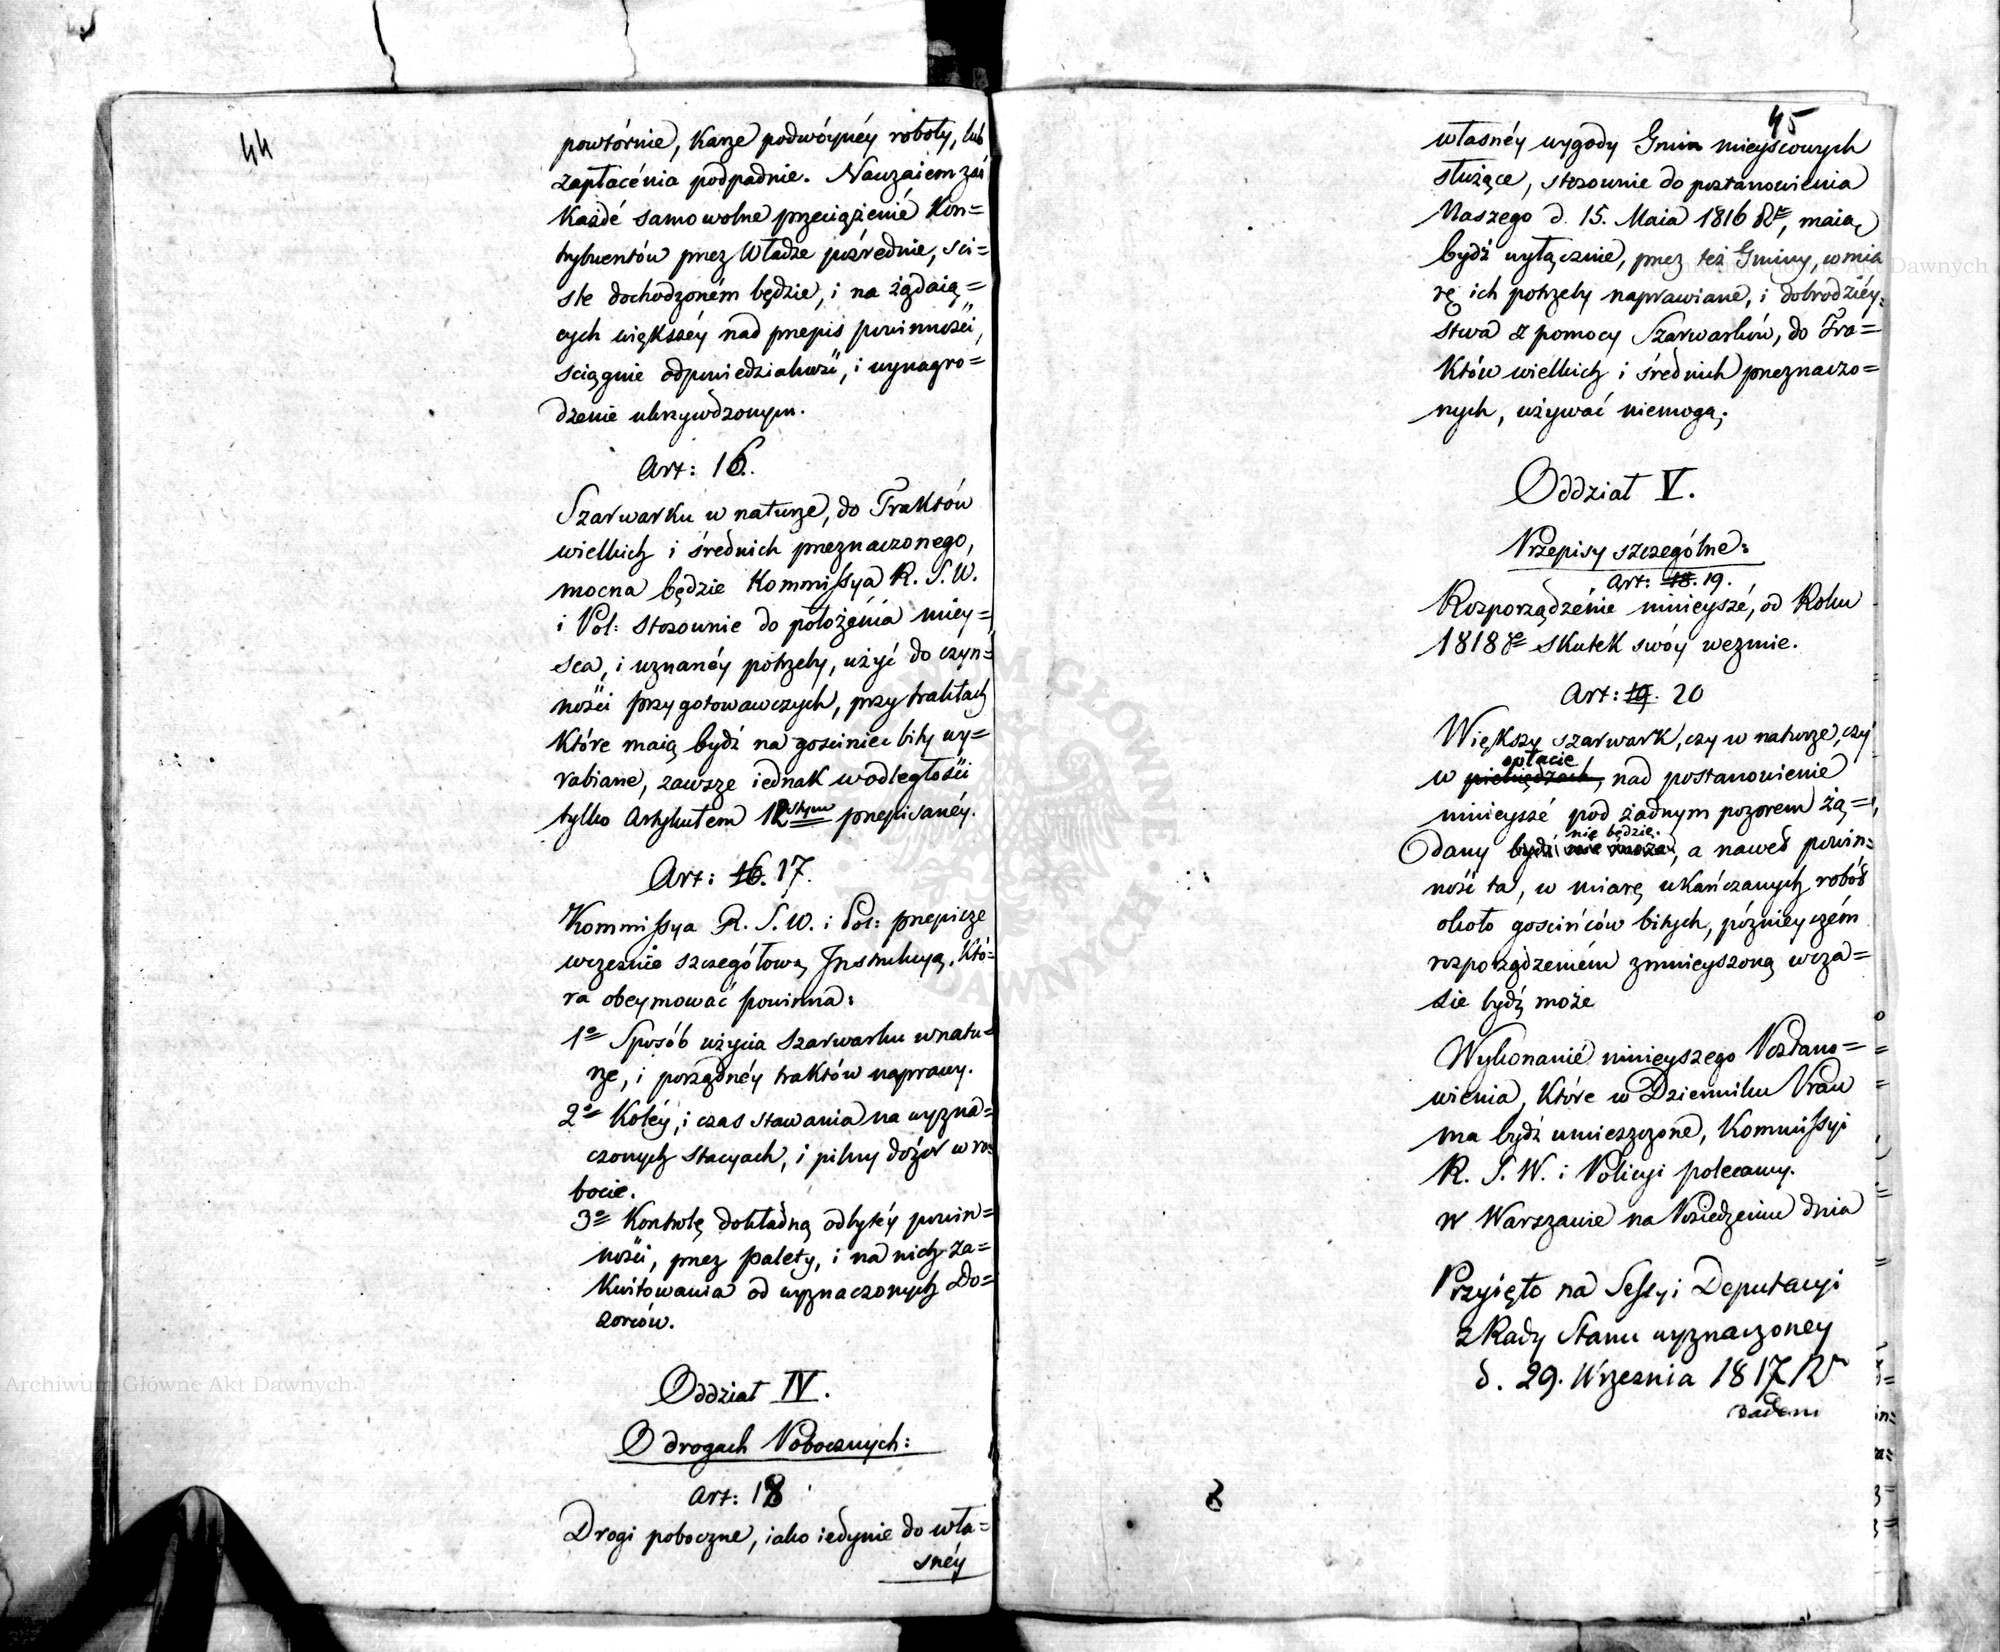 44
powtórnie, karze podwóynéy roboty, lub
zapłacénia podpadnie. Nawzaiem zaś
każdé samowolne przeciążenié kon=
trybuentów przez Władze pośrednie, ści=
śle dochodzoném będzie, i na żądaią=
cych większéy nad przepis powinności,
ściągnie odpowiedzialność, i wynagro=
dzenie ukrzywdzonym.
Art: 16.
Szarwarku w naturze, do Traktów
wielkich i średnich przeznaczonego,
mocna będzie Kommissya R. S. W.
i Pol: stosownie do położénia miey=
sca, i uznanéy potrzeby, użyć do czyn=
ności przygotowawczych, przy traktach
które maią bydź na gościniec bity wy=
rabiane, zawsze iednak w odległości
tylko Artykułem 12stym przepisanéy.
Art: 16. 17.
Kommissya R. S. W. i Pol: przepisze
wcześnie szczegółową Instrukcyą, któ=
ra obeymować powinna:
1o Sposób użycia szarwarku w natu=
rze, i porządnéy traktów naprawy.
2o Koléy, i czas stawania na wyzna=
czonych stacyach, i pilny dozór w ro=
bocie.
3o Kontrolę dokładną odbytéy powin=
ności, przez palety, i na nich za=
kwitowania od wyznaczonych Do=
zorców.
Oddział IV.
O drogach Pobocznych:
Art: 18
Drogi poboczne, iako iedynie do wła=
snéy
45
własnéy wygody Gmin mieyscowych
służące, stosownie do postanowienia
Naszego d. 15. Maia 1816 Rr, maią
bydź wyłącznie, przez też Gminy, w mia
rę ich potrzeby naprawiane, i dobrodziéy=
stwa z pomocy Szarwarków, do Tra=
któw wielkich i średnich przeznaczo=
nych, używać niemogą.
Oddział V.
Przepisy szczególne:
Art: 18. 19.
Rozporządzénie ninieyszé, od Roku
1818go skutek swóy wezmie.
Art: 19. 20
Większy szarwark, czy w naturze, czy
opłacie
w pieniędzach, nad postanowienie
ninieyszé pod żadnym pozorem żą=
nie będzie.
dany bydź nie może, a nawet powin=
ność ta, w miarę ukańczanych robót
około gościńców bitych, poźnieyszém
rozporządzeniém zmnieyszoną w cza=
sie bydź może
Wykonanié ninieyszego Postano=
wienia, które w Dzienniku Praw
ma bydź umieszczoné, Kommissyi
R. S. W. i Policyi polecamy.
w Warszawie na Posiedzeniu dnia
Przyięto na Sessyi Deputacyi
z Rady Stanu wyznaczoney
d. 29. Września 1817 Rr
Badeni
Archiwum Główne Akt Dawnych
Archiwum Główne Akt Dawnych